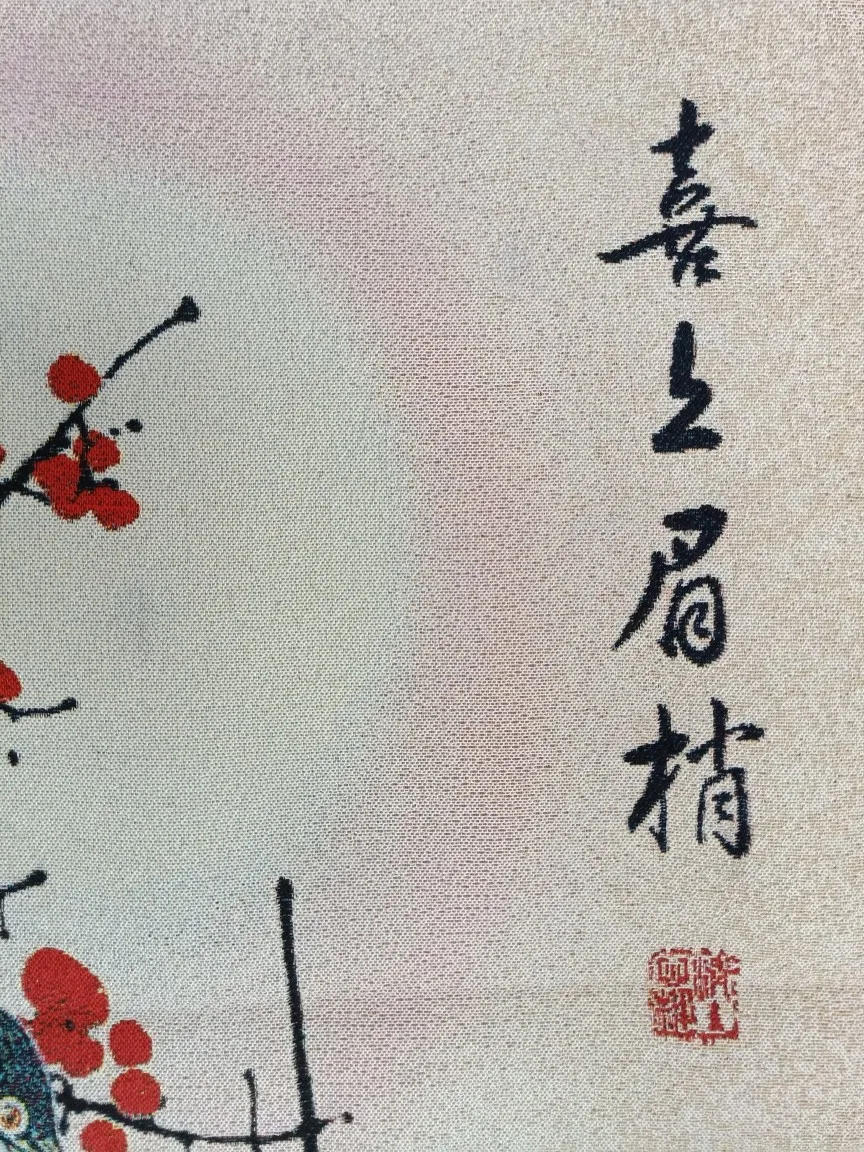 喜上眉梢